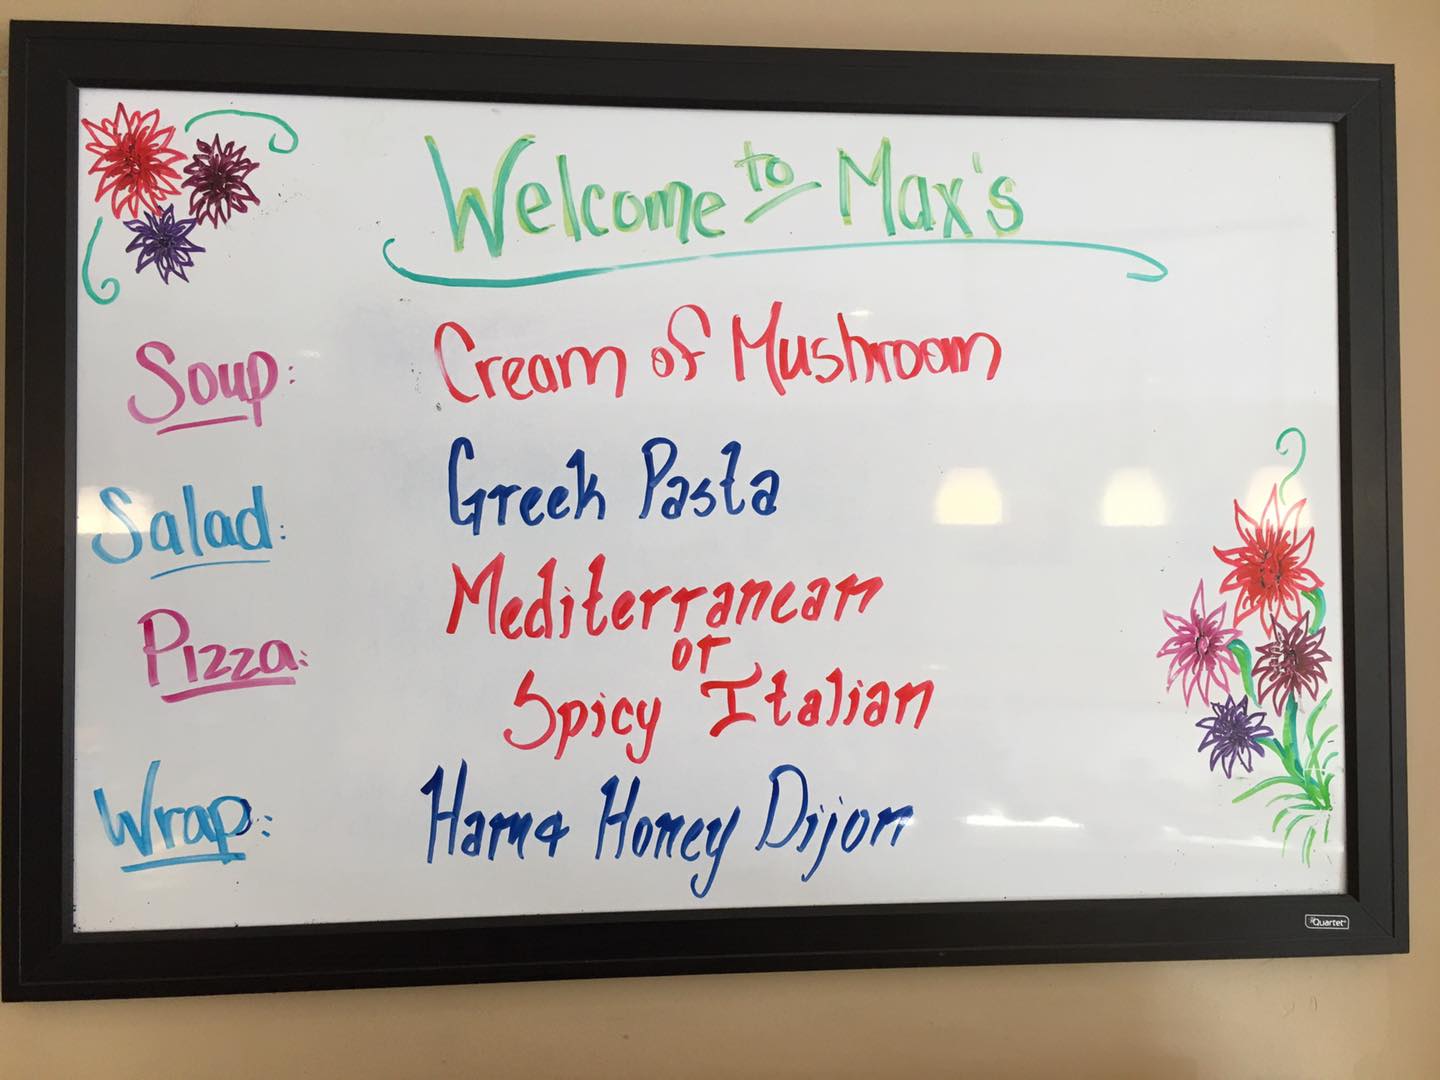 Welcome to Max's
Soup: Cream of Mushroom
Salad: Greek Pasta
Pizza: Mediterranean
or
Spicy Italian
Wrap: Ham & Honey Dijon
Quartet